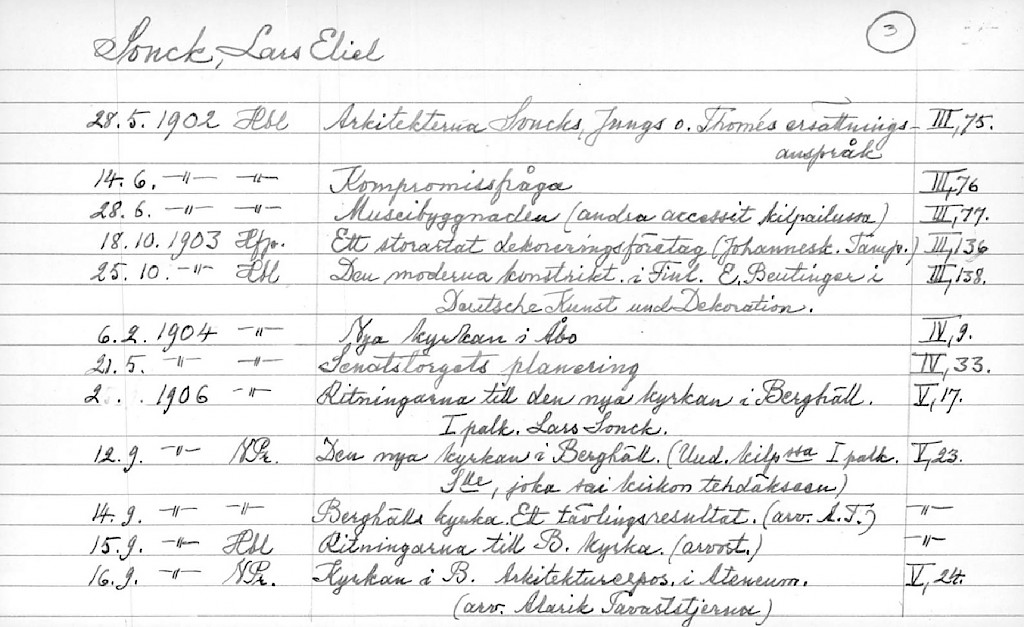 Sonck, Lars Eliel
3
28.5. 1902 Hbl Arkitekterna Soncks, Jungs o. Thomés ersättnings- III, 75.
anspråk
14.6. -"- -"- Kompromissfråga III, 76
28.6. -"- -"- Museibyggnaden (andra accessit kilpailussa) III, 77.
18.10. 1903 Hfp. Ett storartat dekoreringsföretag (Johannesk. Tamp.) III, 136
25.10. -"- Hbl Den moderna konstrikt. i Finl. E. Beutinger i III, 138.
Deutsche Kunst und Dekoration.
6.2. 1904 -"- Nya kyrkan i Åbo IV, 9.
21.5. -"- -"- Senatstorgets planering IV, 33.
2 . . 1906 -"- Ritningarna till den nya kyrkan i Berghäll. V, 17.
I palk. Lars Sonck.
12.9. -"- NPr. Den nya kyrkan i Berghäll. (Uud. kilp ssa I palk. V, 23.
S lle, joka sai kirkon tehdäkseen)
14.9. -"- -"- Berghälls kyrka. Ett tävlingsresultat. (arv. A.T.) -"-
15.9. -"- Hbl Ritningarna till B. kyrka. (arvost.) -"-
16.9. -"- NPr. Kyrkan i B. Arkitekturexpos. i Ateneum. V, 24.
(arv. Alarik Tavaststjerna)